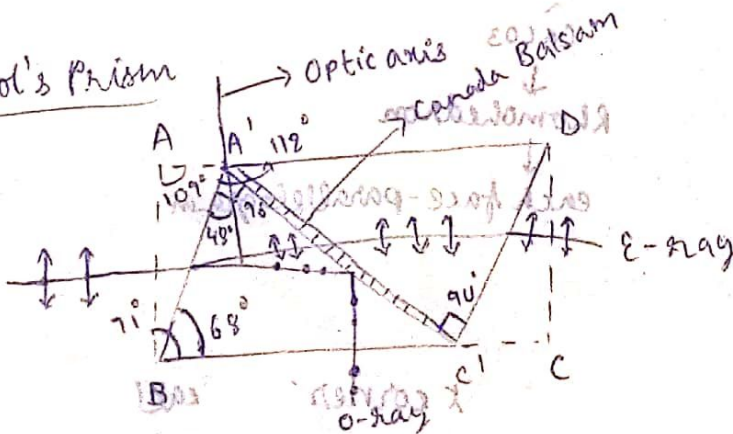 ol's Prism
→ Optic axis
Canada Balsam
A A' 112° D
109°
48° 90
E-ray
71° 68° 90°
B C' C
O-ray